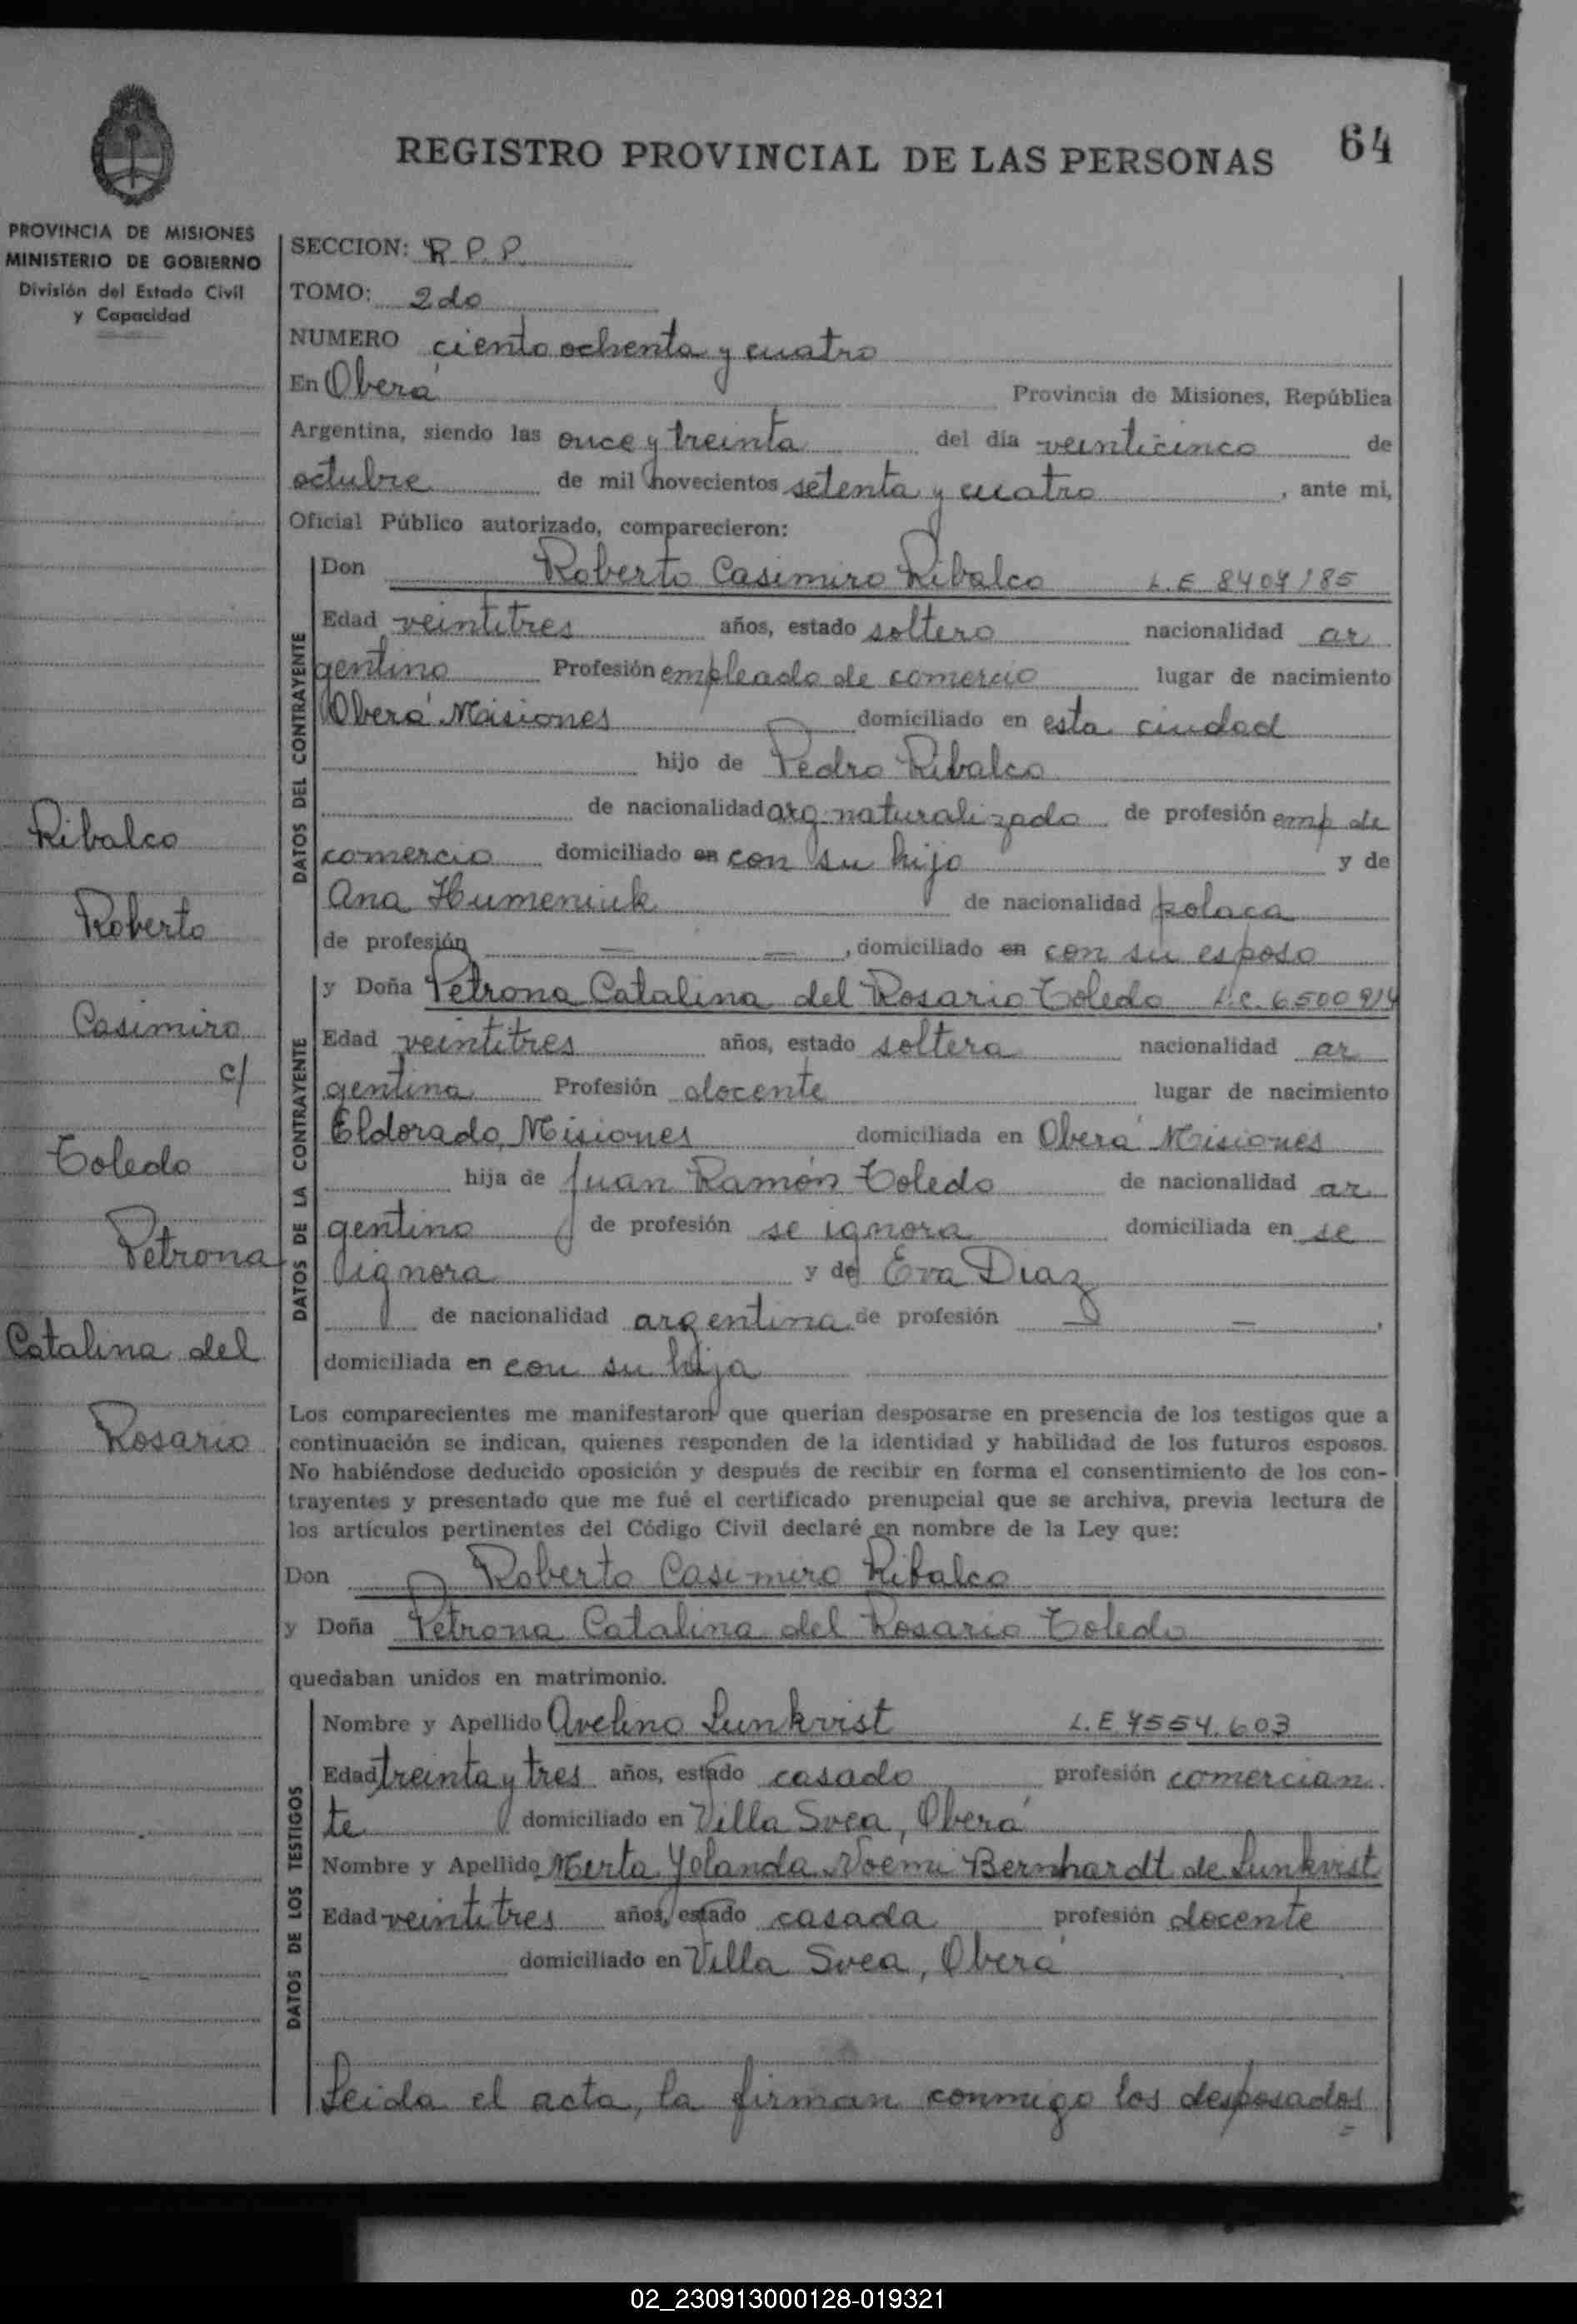 REGISTRO PROVINCIAL DE LAS PERSONAS 64
PROVINCIA DE MISIONES
MINISTERIO DE GOBIERNO
División del Estado Civil
y Capacidad
Ribalco
Roberto
Casimiro
c/
Toledo
Petrona
Catalina del
Rosario
SECCION: R.P.P.
TOMO: 2do
NUMERO ciento ochenta y cuatro
En Oberá Provincia de Misiones, República
Argentina, siendo las once y treinta del día veinticinco de
octubre de mil novecientos setenta y cuatro, ante mi,
Oficial Público autorizado, comparecieron:
DATOS DEL CONTRAYENTE
Don Roberto Casimiro Ribalco L.E 8407185
Edad veintitres años, estado soltero nacionalidad ar
gentino Profesión empleado de comercio lugar de nacimiento
Oberá Misiones domiciliado en esta ciudad
hijo de Pedro Ribalco
de nacionalidad arg. naturalizado de profesión emp de
comercio domiciliado en con su hijo y de
Ana Humeniuk de nacionalidad polaca
de profesión — — , domiciliado en con su esposo
DATOS DE LA CONTRAYENTE
y Doña Petrona Catalina del Rosario Toledo L.C. 6500914
Edad veintitres años, estado soltera nacionalidad ar
gentina Profesión docente lugar de nacimiento
Eldorado, Misiones domiciliada en Oberá Misiones
hija de Juan Ramón Toledo de nacionalidad ar
gentino de profesión se ignora domiciliada en se
ignora y de Eva Diaz
de nacionalidad argentina de profesión — — ,
domiciliada en con su hija
Los comparecientes me manifestaron que querían desposarse en presencia de los testigos que a
continuación se indican, quienes responden de la identidad y habilidad de los futuros esposos.
No habiéndose deducido oposición y después de recibir en forma el consentimiento de los con-
trayentes y presentado que me fué el certificado prenupcial que se archiva, previa lectura de
los artículos pertinentes del Código Civil declaré en nombre de la Ley que:
Don Roberto Casimiro Ribalco
y Doña Petrona Catalina del Rosario Toledo
quedaban unidos en matrimonio.
DATOS DE LOS TESTIGOS
Nombre y Apellido Avelino Lunkvist L.E. 7554.603
Edad treinta y tres años, estado casado profesión comercian
te domiciliado en Villa Svea, Oberá
Nombre y Apellido Mirta Yolanda Noemi Bernhardt de Lunkvist
Edad veintitres años, estado casada profesión docente
domiciliado en Villa Svea, Oberá
Leida el acta, la firman conmigo los desposados
02_230913000128-019321